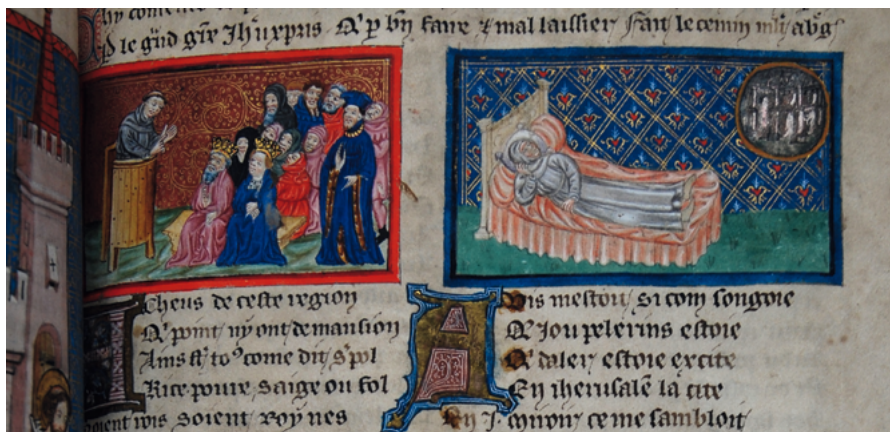 le Ihu xpris Q̃ p bñ faire & mal laissier fait le cemin
A Cheus de ceste region
Q̃ point ny ont de mansion
Ains st to⁹ come dit s pol
Rice poure saige ou fol
soient rois soient roynes
A Vis mestoit si com songoie
Q̃ Jou pelerins estoie
Q̃ daler estoie excite
En iherusalē la cite
En J. miroir ce me sambloit